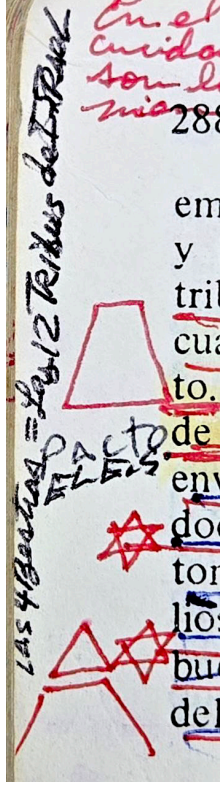 En el
son l
288
em
y
tri
cua
to.
de
env
do
ton
lios
bue
del
Pacto
LAS 4 Bestias = Las 12 Tribus de ISRael